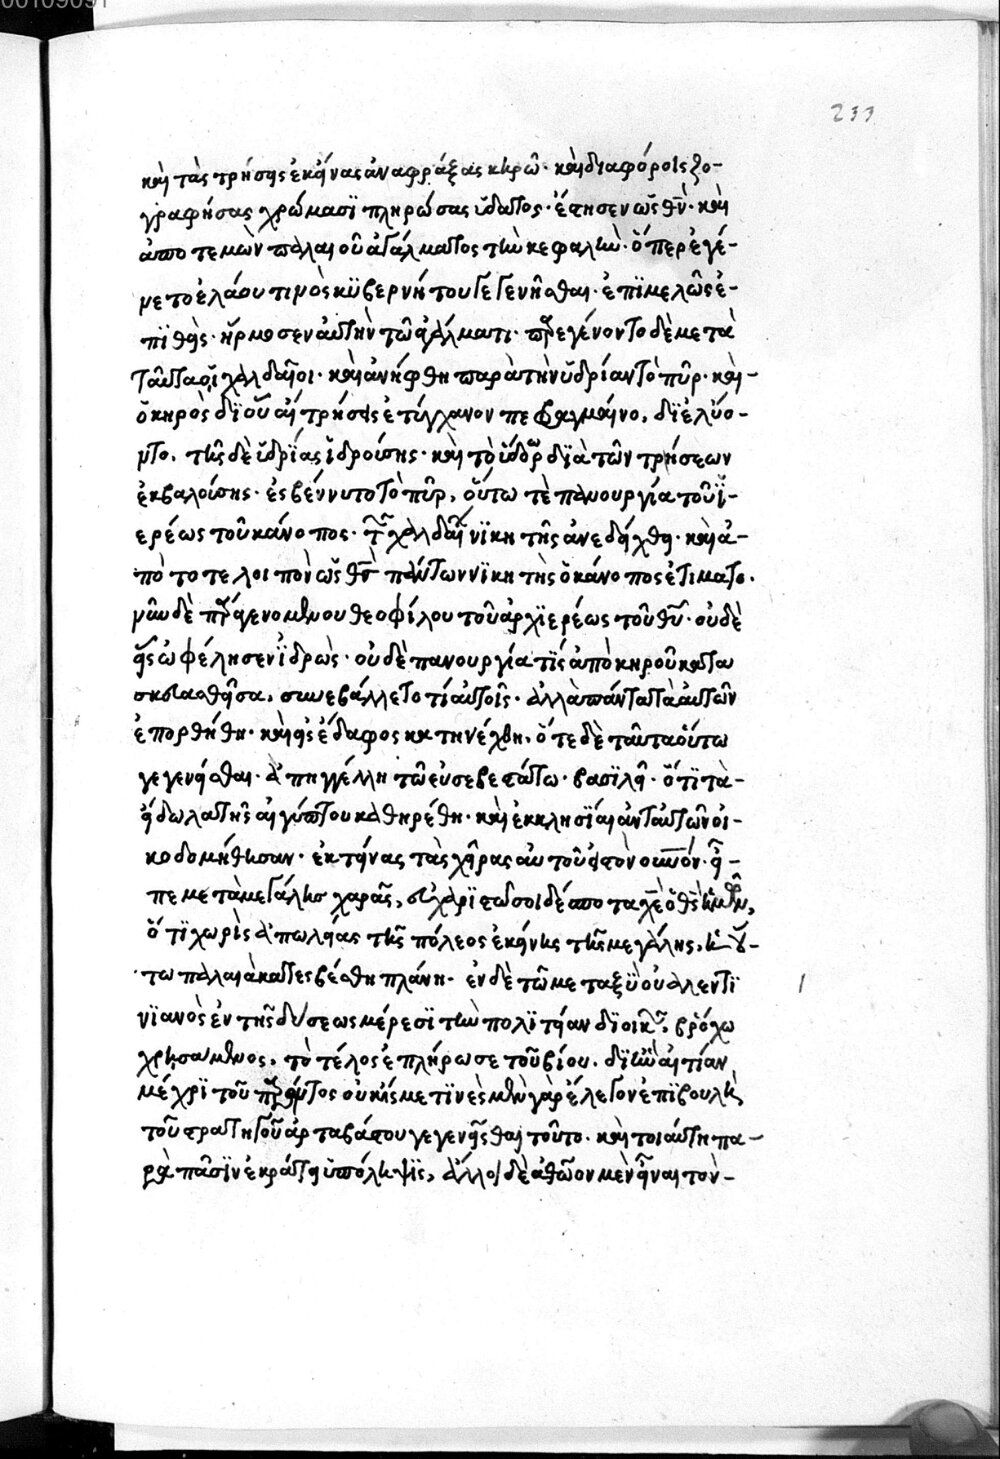 233
καὶ τὰς τρήσεις ἐκείνας ἀναφράξας κηρῶ· καὶ διαφόροις ζο-
γραφήσας χρώμασϊ πληρώσας ὕδατος· ἔστησεν ὡς θν· καὶ
ἀπο τεμὼν παλαιοῦ ἀγάλματος τὴν κεφαλὴν· ὅπερ ἐγέ-
μετο ἐλάου τιμὸς κϋβερνήτου γεγενῆσθαι· ἐπϊμελῶς ἐ-
πϊθεὶς· ἥρμοσεν ἀυτὴν τῶ ἀγάλματι· παρεγένοντο δὲ μετὰ
ταῦτα οἱ χαλδαῖοι· καὶ ἀνήφθη παρὰ τὴν ὑδρίαν τὸ πῦρ· καὶ-
ὁ κηρὸς δϊ οὗ αἱ τρήσεις ἐτύγχανον πεφραγμαίναι, δϊελύσ-
ντο. τῆς δὲ ὑδρίας ἱδρούσης· καὶ τὸ ὕδωρ δϊὰ τῶν τρήσεων
ἐκβαλούσης· ἐσβέννυτο τὸ πῦρ, οὕτω τὲ πανουργία τοῦ ϊ-
ερέως τοῦ κάνοπος· τῶν χαλδαίων νϊκητῆς ἀνεδείχθη· καὶ ἀ-
πὸ το τε λοιπὸν ὡς θς πάντων νϊκητὴς ὁ κάνοπος ἐτιματο.
νῦν δὲ παραγενομένου θεοφίλου τοῦ ἀρχϊερέως τοῦ θυ· οὐδὲ
εἷς ὠφέλησεν ἱδρὼς· οὐδὲ πανουργία τϊς ἀπὸ κηροῦ κατα
σκευασθεῖσα, συνεβάλλετο τί αὐτοῖς· ἀλλὰ πάντα τὰ αὐτῶν
ἐπορθήθη· καὶ εἰς ἔδαφος κατηνέχθη, ὅτε δὲ ταῦτα οὕτω
γεγενῆσθαι· ἀπηγγέλλη τῶ εὐσεβεστάτω· βασϊλεῖ· ὅτϊ τὰ-
εἴδωλα τῆς αἰγύπτου καθηρέθη· καὶ ἐκκλησϊαι ἀντ αὐτῶν οἰ-
κοδομήθησαν· ἐκτείνας τὰς χεῖρας αὐτοῦ εἰς τὸν ουνόν· εἶ-
πε μετὰ μεγάλης χαρᾶς, εὐχαρϊστῶ σοι δέσποτα χὲ ὁ θς ἡμῶν,
ὅτϊ χωρὶς ἀπωλείας τῆς πόλεος ἐκείνης τῆς μεγάλης, ἡ τοσ-
αύτω παλαιὰ κατεσβέσθη πλάνη· ἐν δὲ τῶ μεταξϋ οὐαλεντϊ
νϊανὸς ἐν τῆς δύσεως μέρεσϊ τὴν πολϊτείαν δϊοικῶν, βρόχω
χρησάμενος, τὸ τέλος ἐπλήρωσε τοῦ βίου. δϊ ἣν αἰτίαν
μέχρϊ τοῦ παρόντος οὐκ εἰς με τϊνὲς μὲν γὰρ ἔλεγον ἐπϊβουλῆς
τοῦ στρατηγοῦ ἀρταβάστου γεγενῆσθαι τοῦτο· καὶ τοιάυτη πα-
ρὰ πᾶσϊν ἐκράτει ὑπόληψϊς, ἄλλοι δὲ ἀθῶον μὲν εἶναι τὸν-